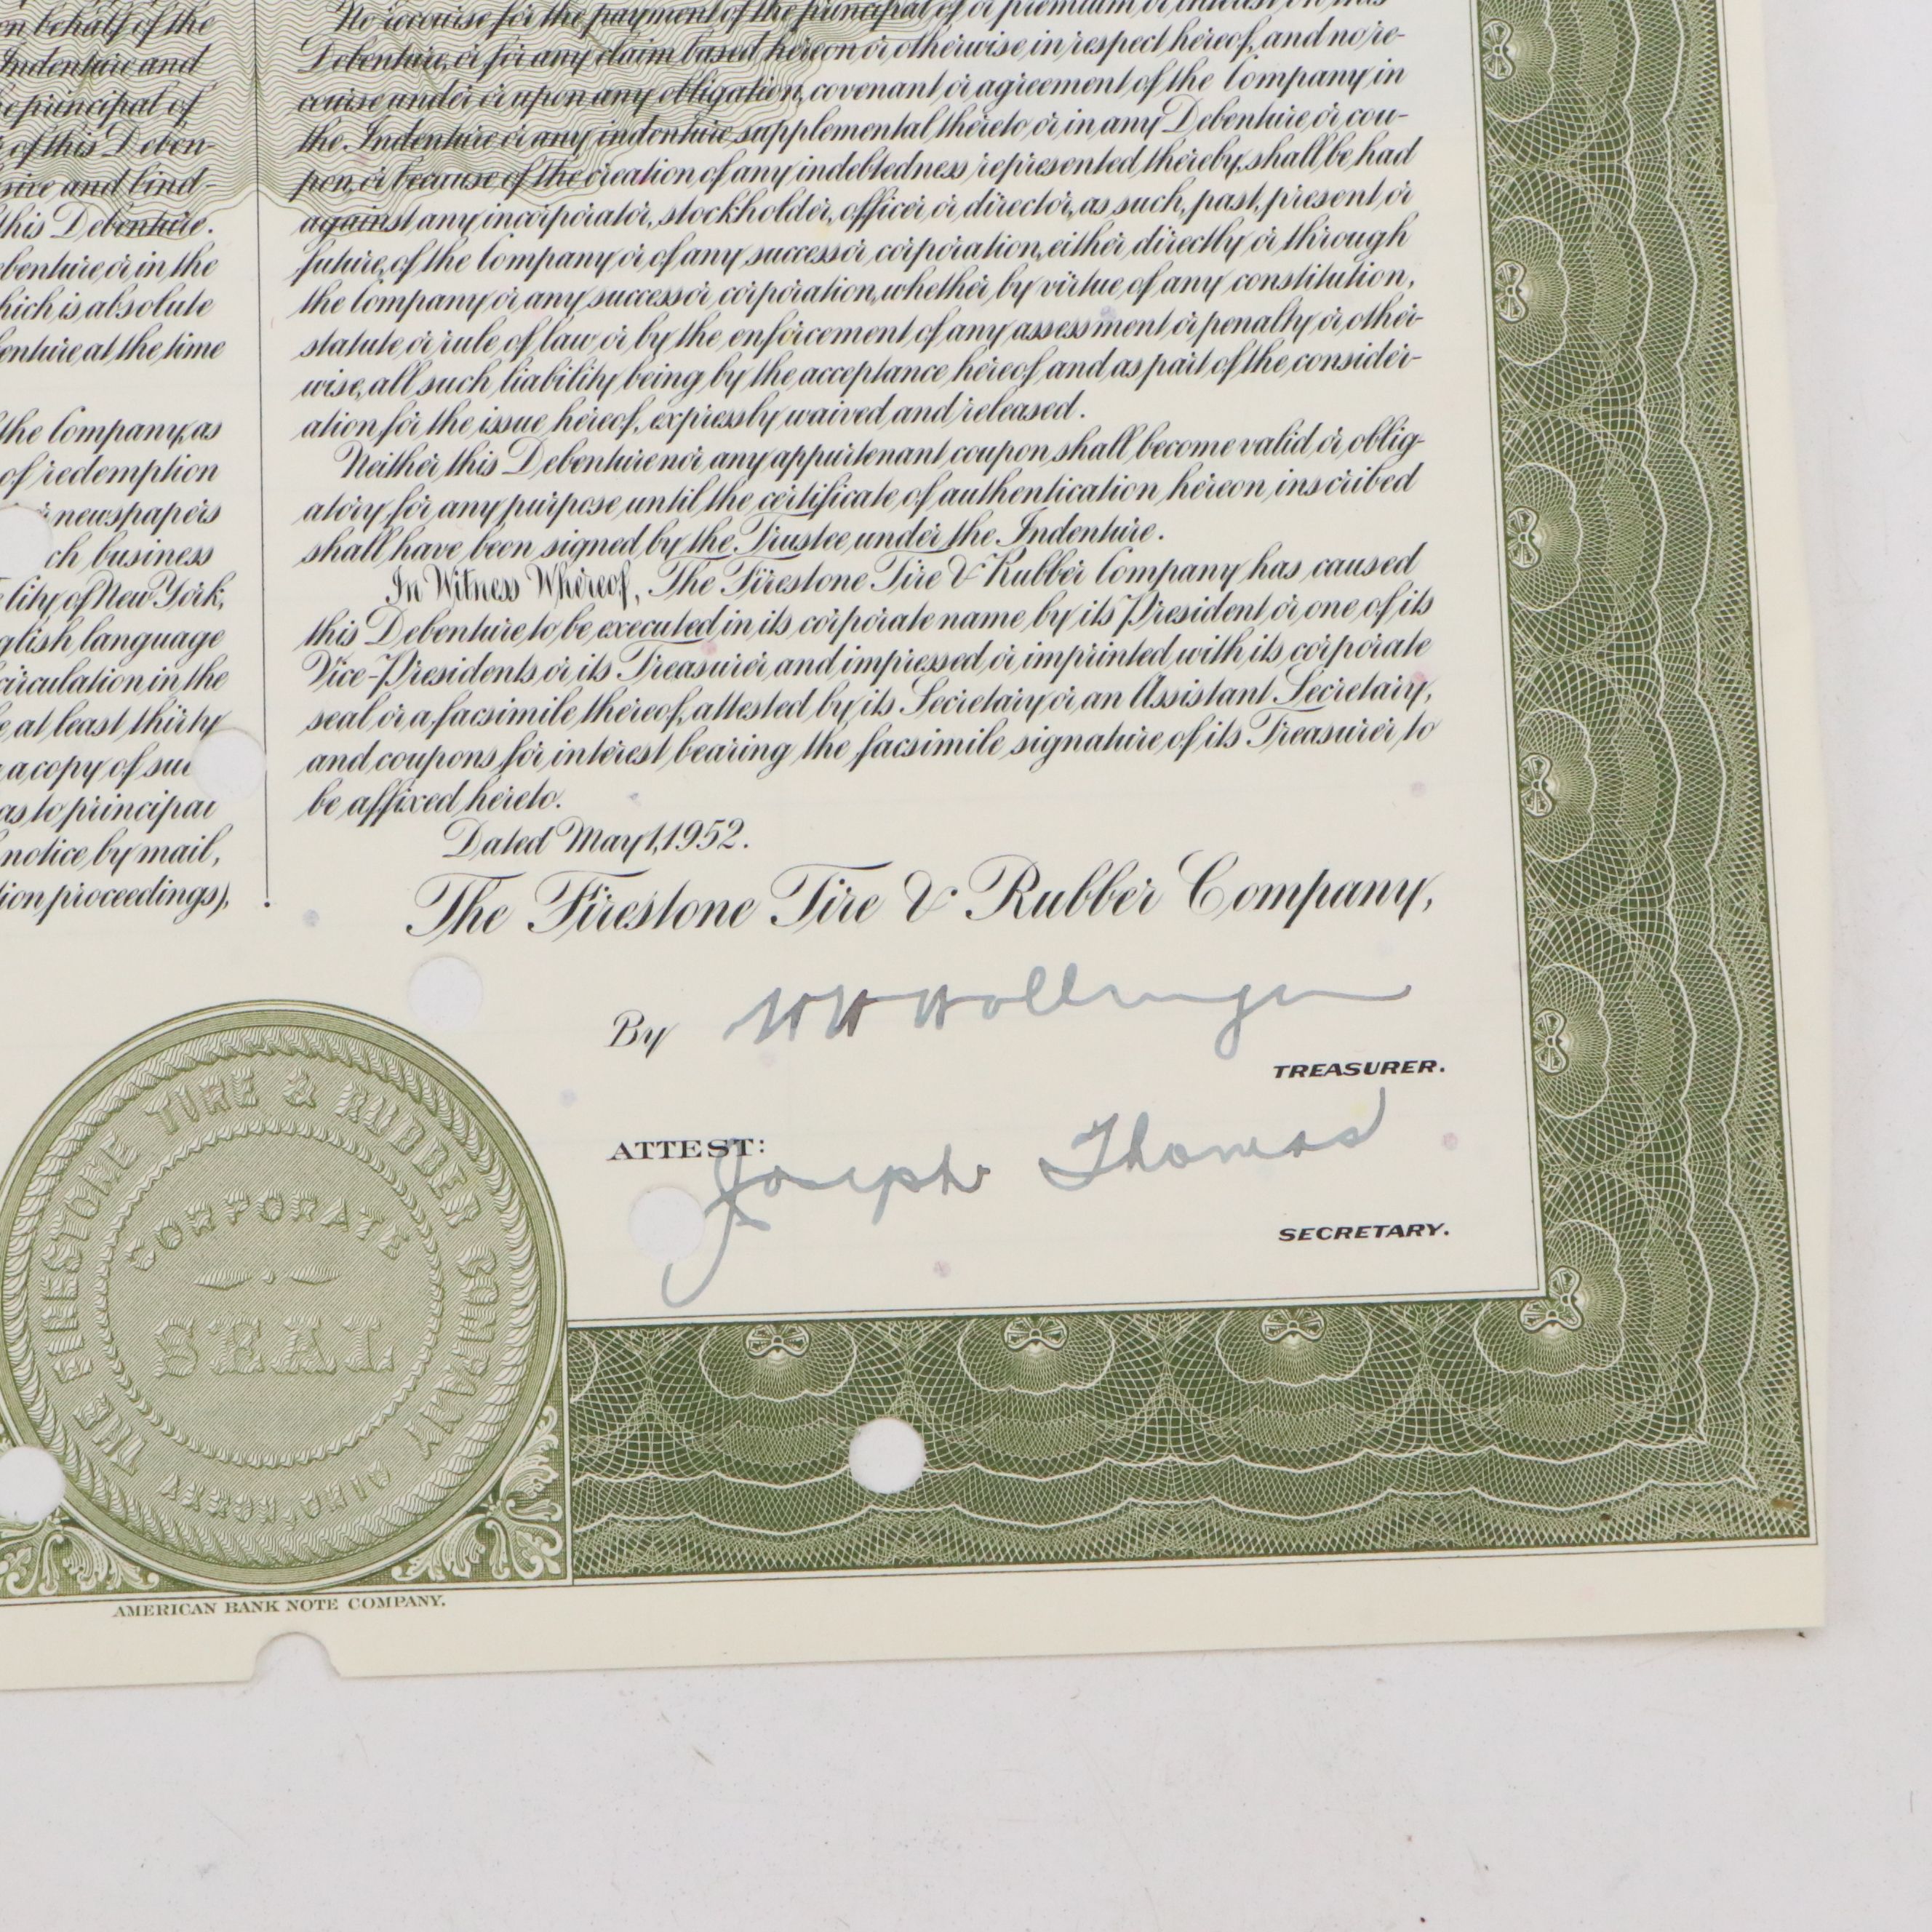 on behalf of the
Indenture and
he principal of
of this Deben-
sive and bind-
this Debenture.
ebenture or in the
which is absolute
enture at the time
the Company, as
of redemption
newspapers
ch business
City of New York,
glish language
circulation in the
e at least thirty
a copy of suc
as to principal
notice by mail,
tion proceedings),
No recourse for the payment of the principal of or premium or interest on this
Debenture, or for any claim based hereon or otherwise in respect hereof, and no re-
course under or upon any obligation, covenant or agreement of the Company in
the Indenture or any indenture supplemental thereto or in any Debenture or cou-
pon, or because of the creation of any indebtedness represented thereby, shall be had
against any incorporator, stockholder, officer or director, as such, past, present or
future, of the Company or of any successor corporation, either directly or through
the Company or any successor corporation, whether by virtue of any constitution,
statute or rule of law or by the enforcement of any assessment or penalty or other-
wise, all such liability being by the acceptance hereof and as part of the consider-
ation for the issue hereof, expressly waived and released.
Neither this Debenture nor any appurtenant coupon shall become valid or oblig-
atory for any purpose until the certificate of authentication hereon inscribed
shall have been signed by the Trustee under the Indenture.
In Witness Whereof, The Firestone Tire & Rubber Company has caused
this Debenture to be executed in its corporate name by its President or one of its
Vice-Presidents or its Treasurer and impressed or imprinted with its corporate
seal or a facsimile thereof, attested by its Secretary or an Assistant Secretary,
and coupons for interest bearing the facsimile signature of its Treasurer to
be affixed hereto.
Dated May 1, 1952.
The Firestone Tire & Rubber Company,
By
TREASURER.
ATTEST:
Joseph Thomas
SECRETARY.
THE FIRESTONE TIRE & RUBBER COMPANY
AKRON, OHIO
CORPORATE
SEAL
AMERICAN BANK NOTE COMPANY.